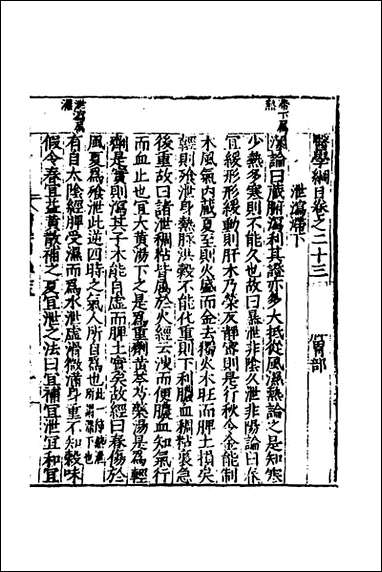 醫學綱目卷之二十三　胃部
泄瀉滯下
滯下爲熱
潔論曰臟腑瀉利其證亦多大抵從風濕熱論之是知寒
少熱多寒則不能久也故曰暴泄非陰久泄非陽論曰
宜緩形形緩動則肝木乃榮友靜密則是行秋令金能制
木風氣內藏夏至則火盛而金去獨火木旺而脾土損矣
輕則飱泄身熱脉洪穀不能化重則下利膿血稠粘裏急
後重故曰諸泄稠粘皆屬於火經云溲而便膿血知氣行
而血止也宜大黃湯下之是爲重劑黃芩芍藥湯是爲輕
劑是實則瀉其子木能自虛而脾土實矣故經曰春傷於
風夏爲飱泄此逆四時之氣人所自爲也此一節飱泄所謂滯下也
泄瀉爲濕
有自太陰經脾受濕而爲水泄虛滑微滿身重不知穀味
假令春宜益黃散補之夏宜泄之法曰宜補宜泄宜和宜